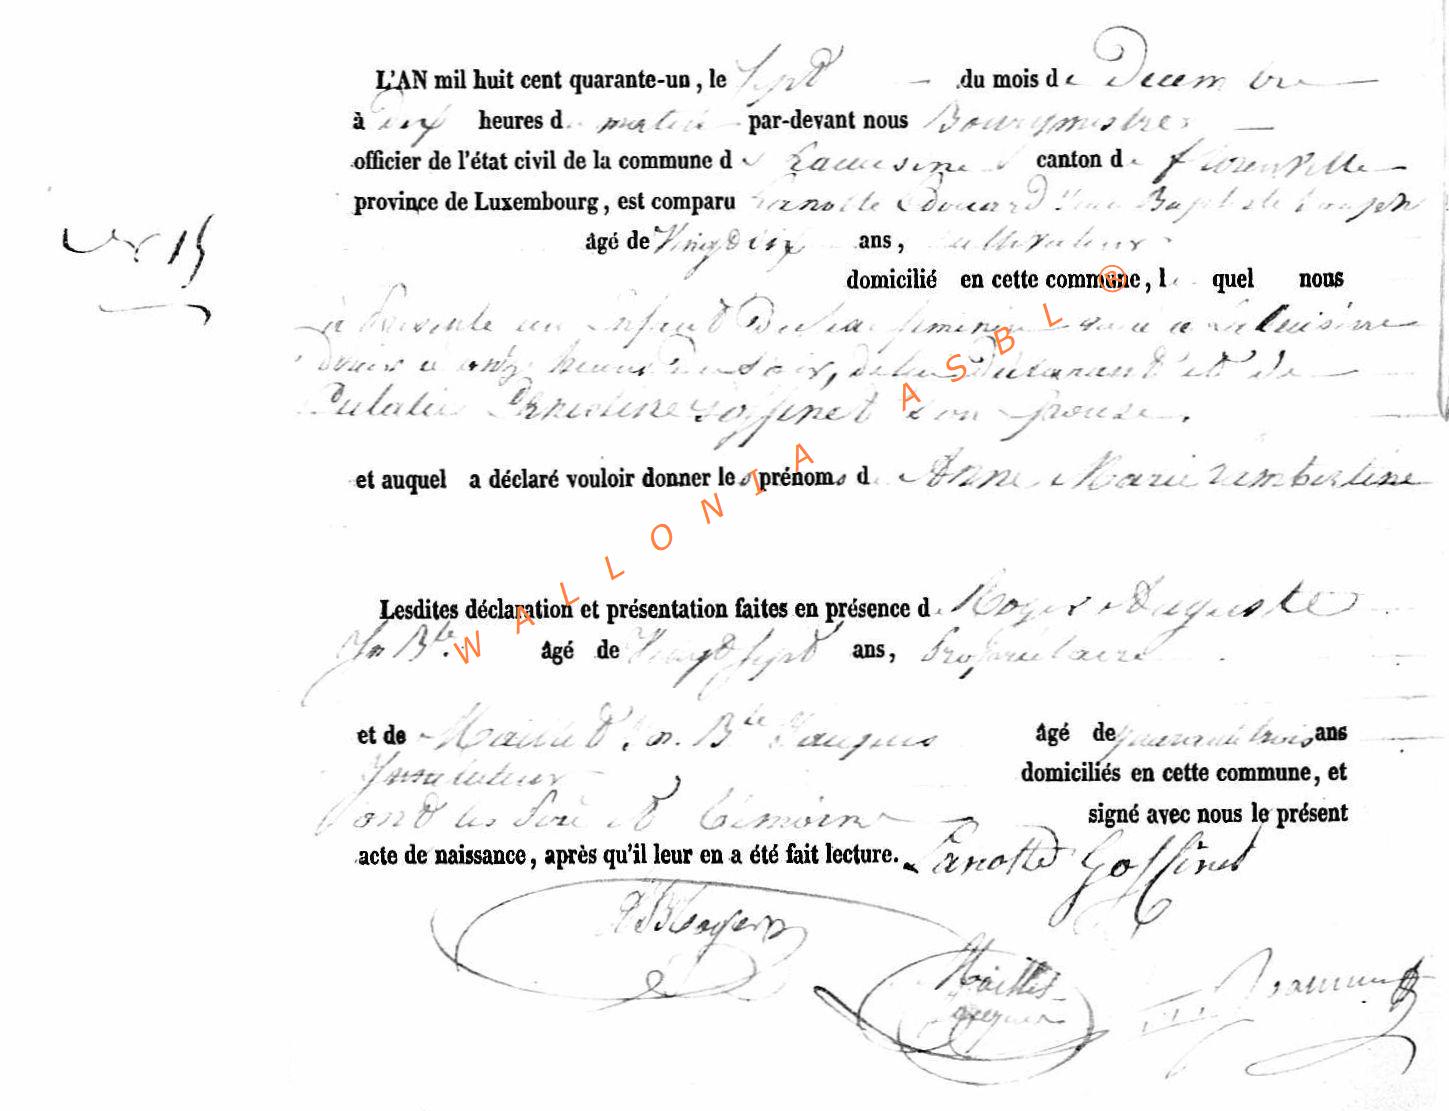 L'AN mil huit cent quarante-un, le Sept du mois de Decembre
à Dix heures d matin par-devant nous Bourgmestre
officier de l'état civil de la commune de Lacuisine canton de florenville
province de Luxembourg, est comparu Lanotte Edouard Jean Baptiste Joseph
15
âgé de Vingt Dix ans, cultivateur
domicilié en cette commune, le quel nous
à présenté un Enfant Du Sexe féminin né à Lacuisine
à onze heures Du Soir, de lui Déclarant et de
Eulalie Ernestine Goffinet son Epouse.
et auquel a déclaré vouloir donner les prénoms d Anne Marie Lambertine
Lesdites déclaration et présentation faites en présence de Auguste
Jn Bte. âgé de Vingt Sept ans, Propriétaire
et de Jn. Bte Jacques âgé de quarante trois ans
Instituteur domiciliés en cette commune, et
ont les Père et témoins signé avec nous le présent
acte de naissance, après qu'il leur en a été fait lecture. Lanotte Goffinet
WALLONIA ASBL ®